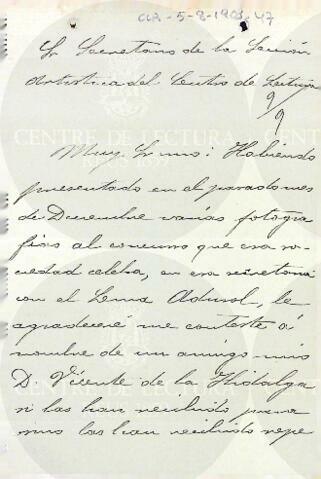 Sr Secretario de la Sección
Artistica del Centro de Lectura
Muy Sr mio: Habiendo
presentado en el pasado mes
de Diciembre varias fotogra
fias al concurso que esa so-
ciedad celebra, en esa secretaria
con el Lema Adurol, le
agradeceré me conteste á
nombre de un amigo mio
D. Vicente de la Hidalga
si las han recibido pues
no las han recibido
CENTRE DE LECTURA
REUS 1859